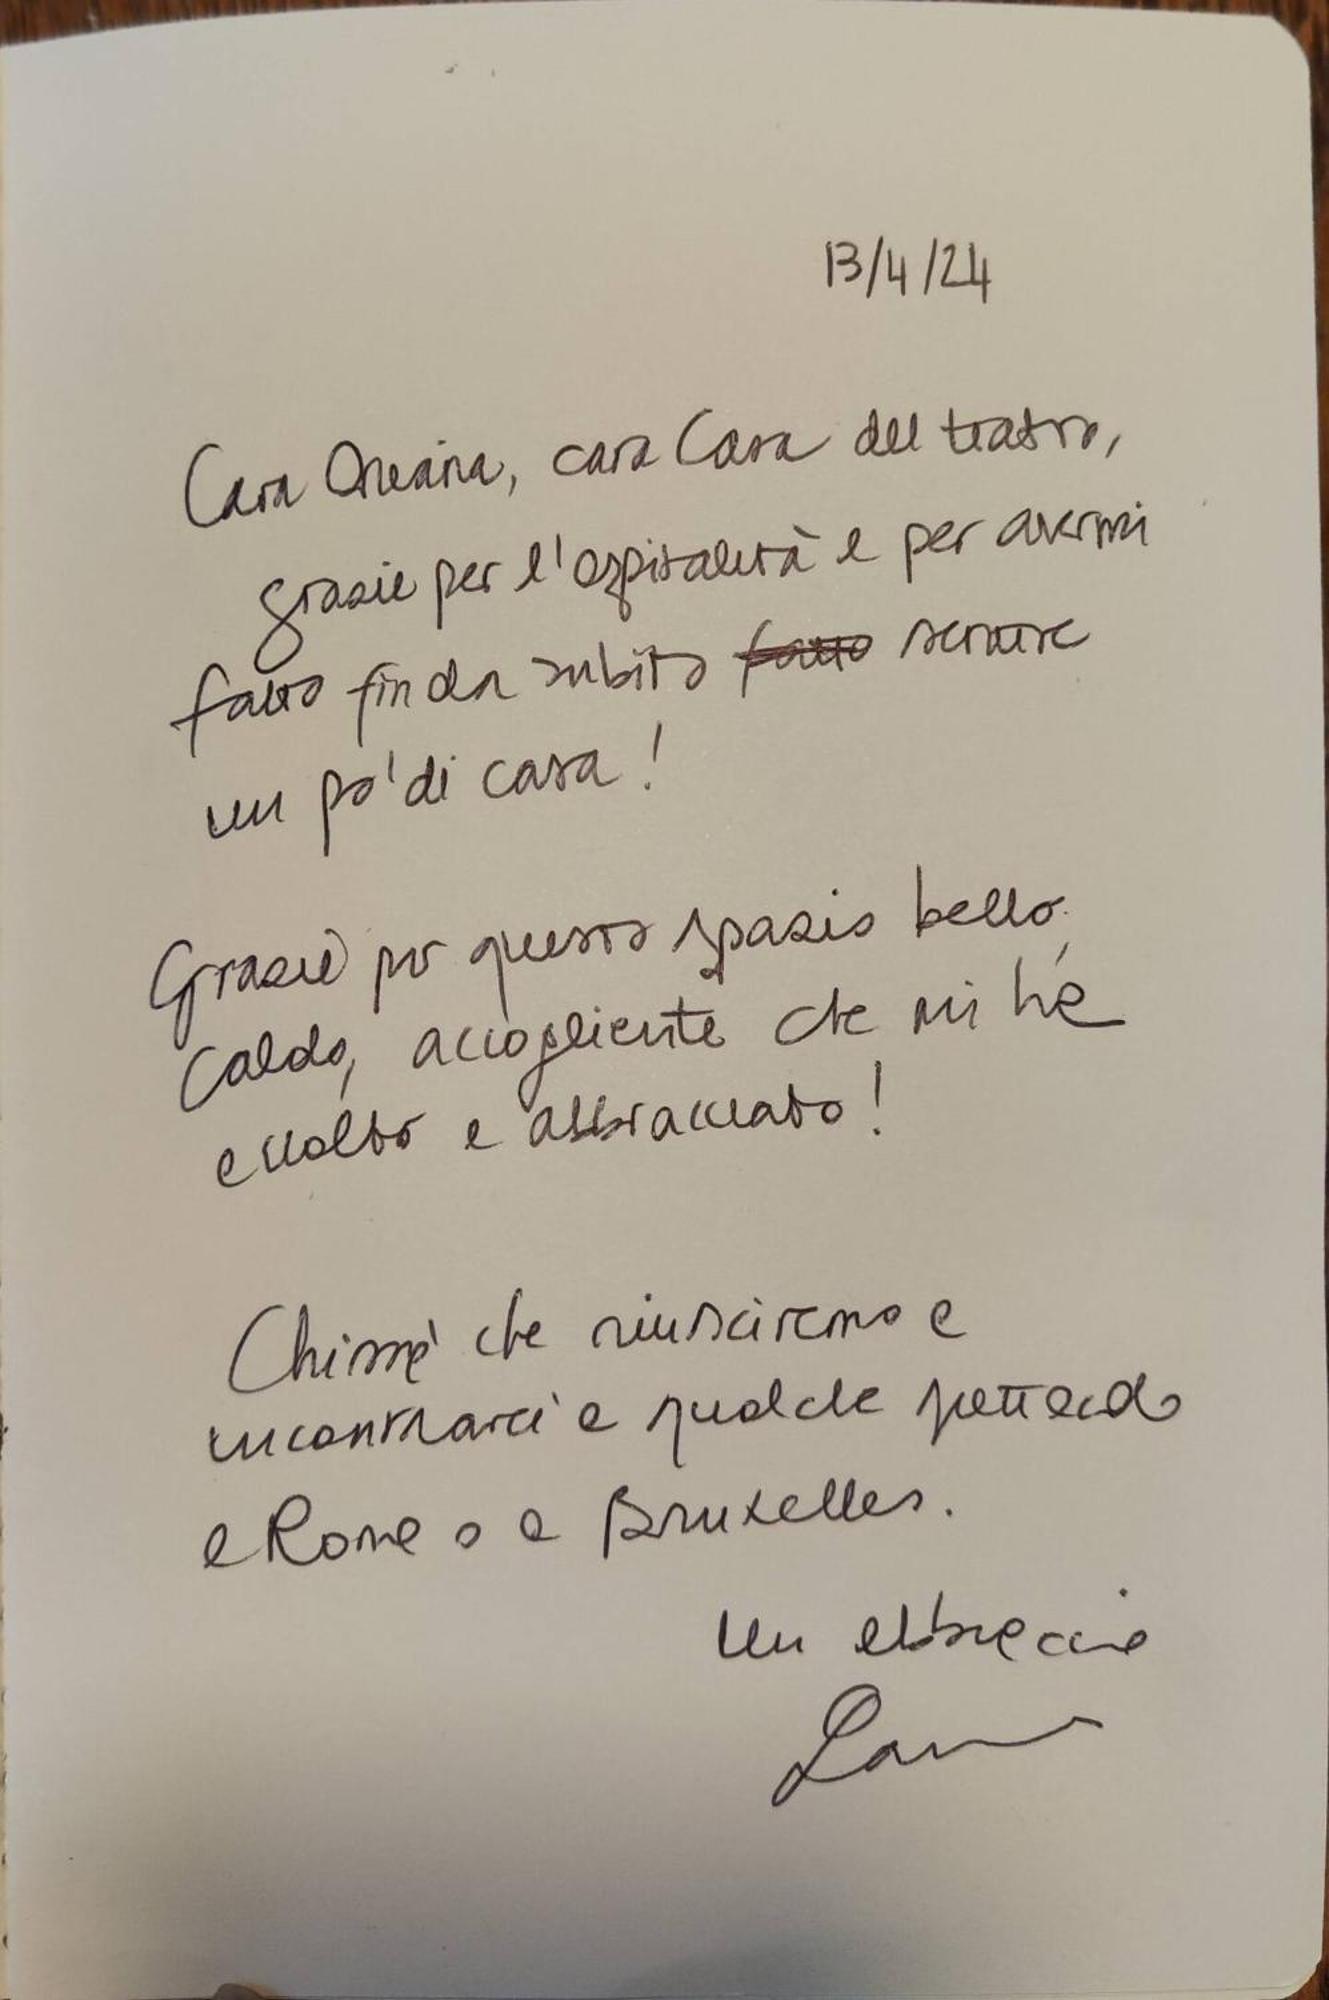 13/4/24
Cara Oneaina, cara Casa del teatro,
grazie per l'ospitalità e per avermi
fatto fin da subito fatto sentire
un po' di casa!
Grazie per questo spazio bello,
caldo, accogliente che mi ha
accolto e abbracciato!
Chissà che riusciremo a
incontrarci a qualche spettacolo
a Roma o a Bruxelles.
Un abbraccio